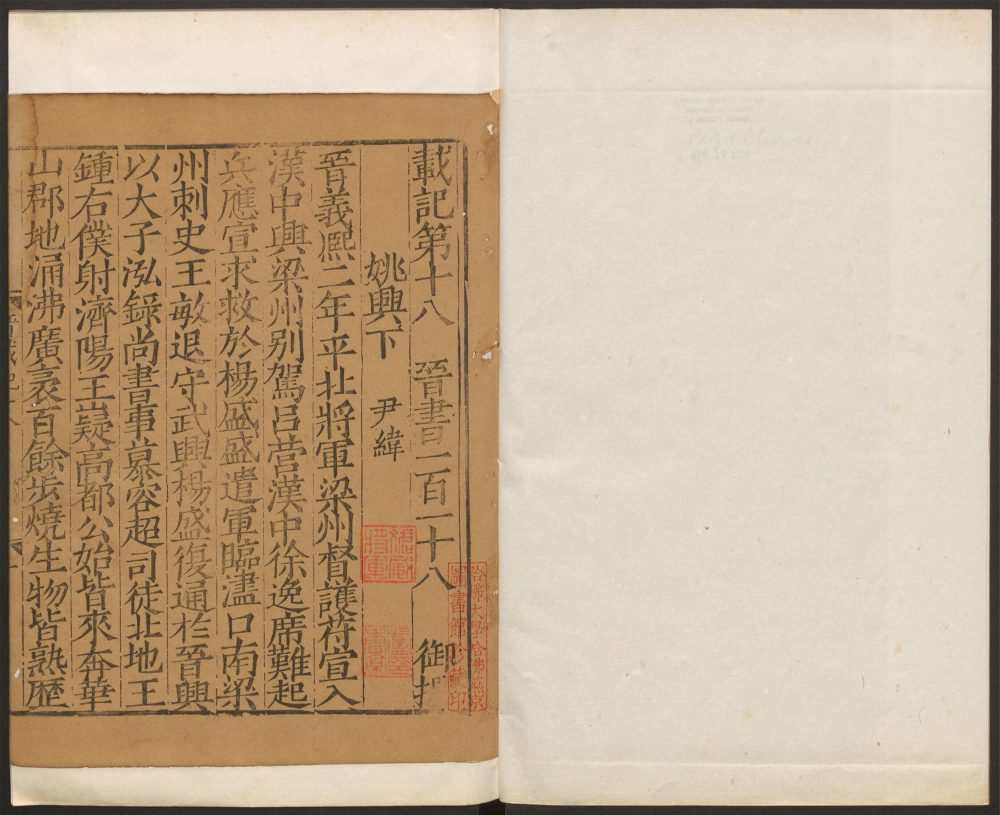 載記第十八 晉書一百一十八 御撰
姚興下 尹緯
晉義熈二年平北將軍梁州督護苻宣入
漢中興梁州别駕呂營漢中徐逸席難起
兵應宣求救於楊盛盛遣軍臨濜口南梁
州刺史王敏退守武興楊盛復通於晉興
以大子泓録尚書事慕容超司徒北地王
鍾右僕射濟陽王嶷髙都公始皆來奔華
山郡地涌沸廣袤百餘步燒生物皆熟歷
哈佛大學哈佛燕京
圖書館珍藏印